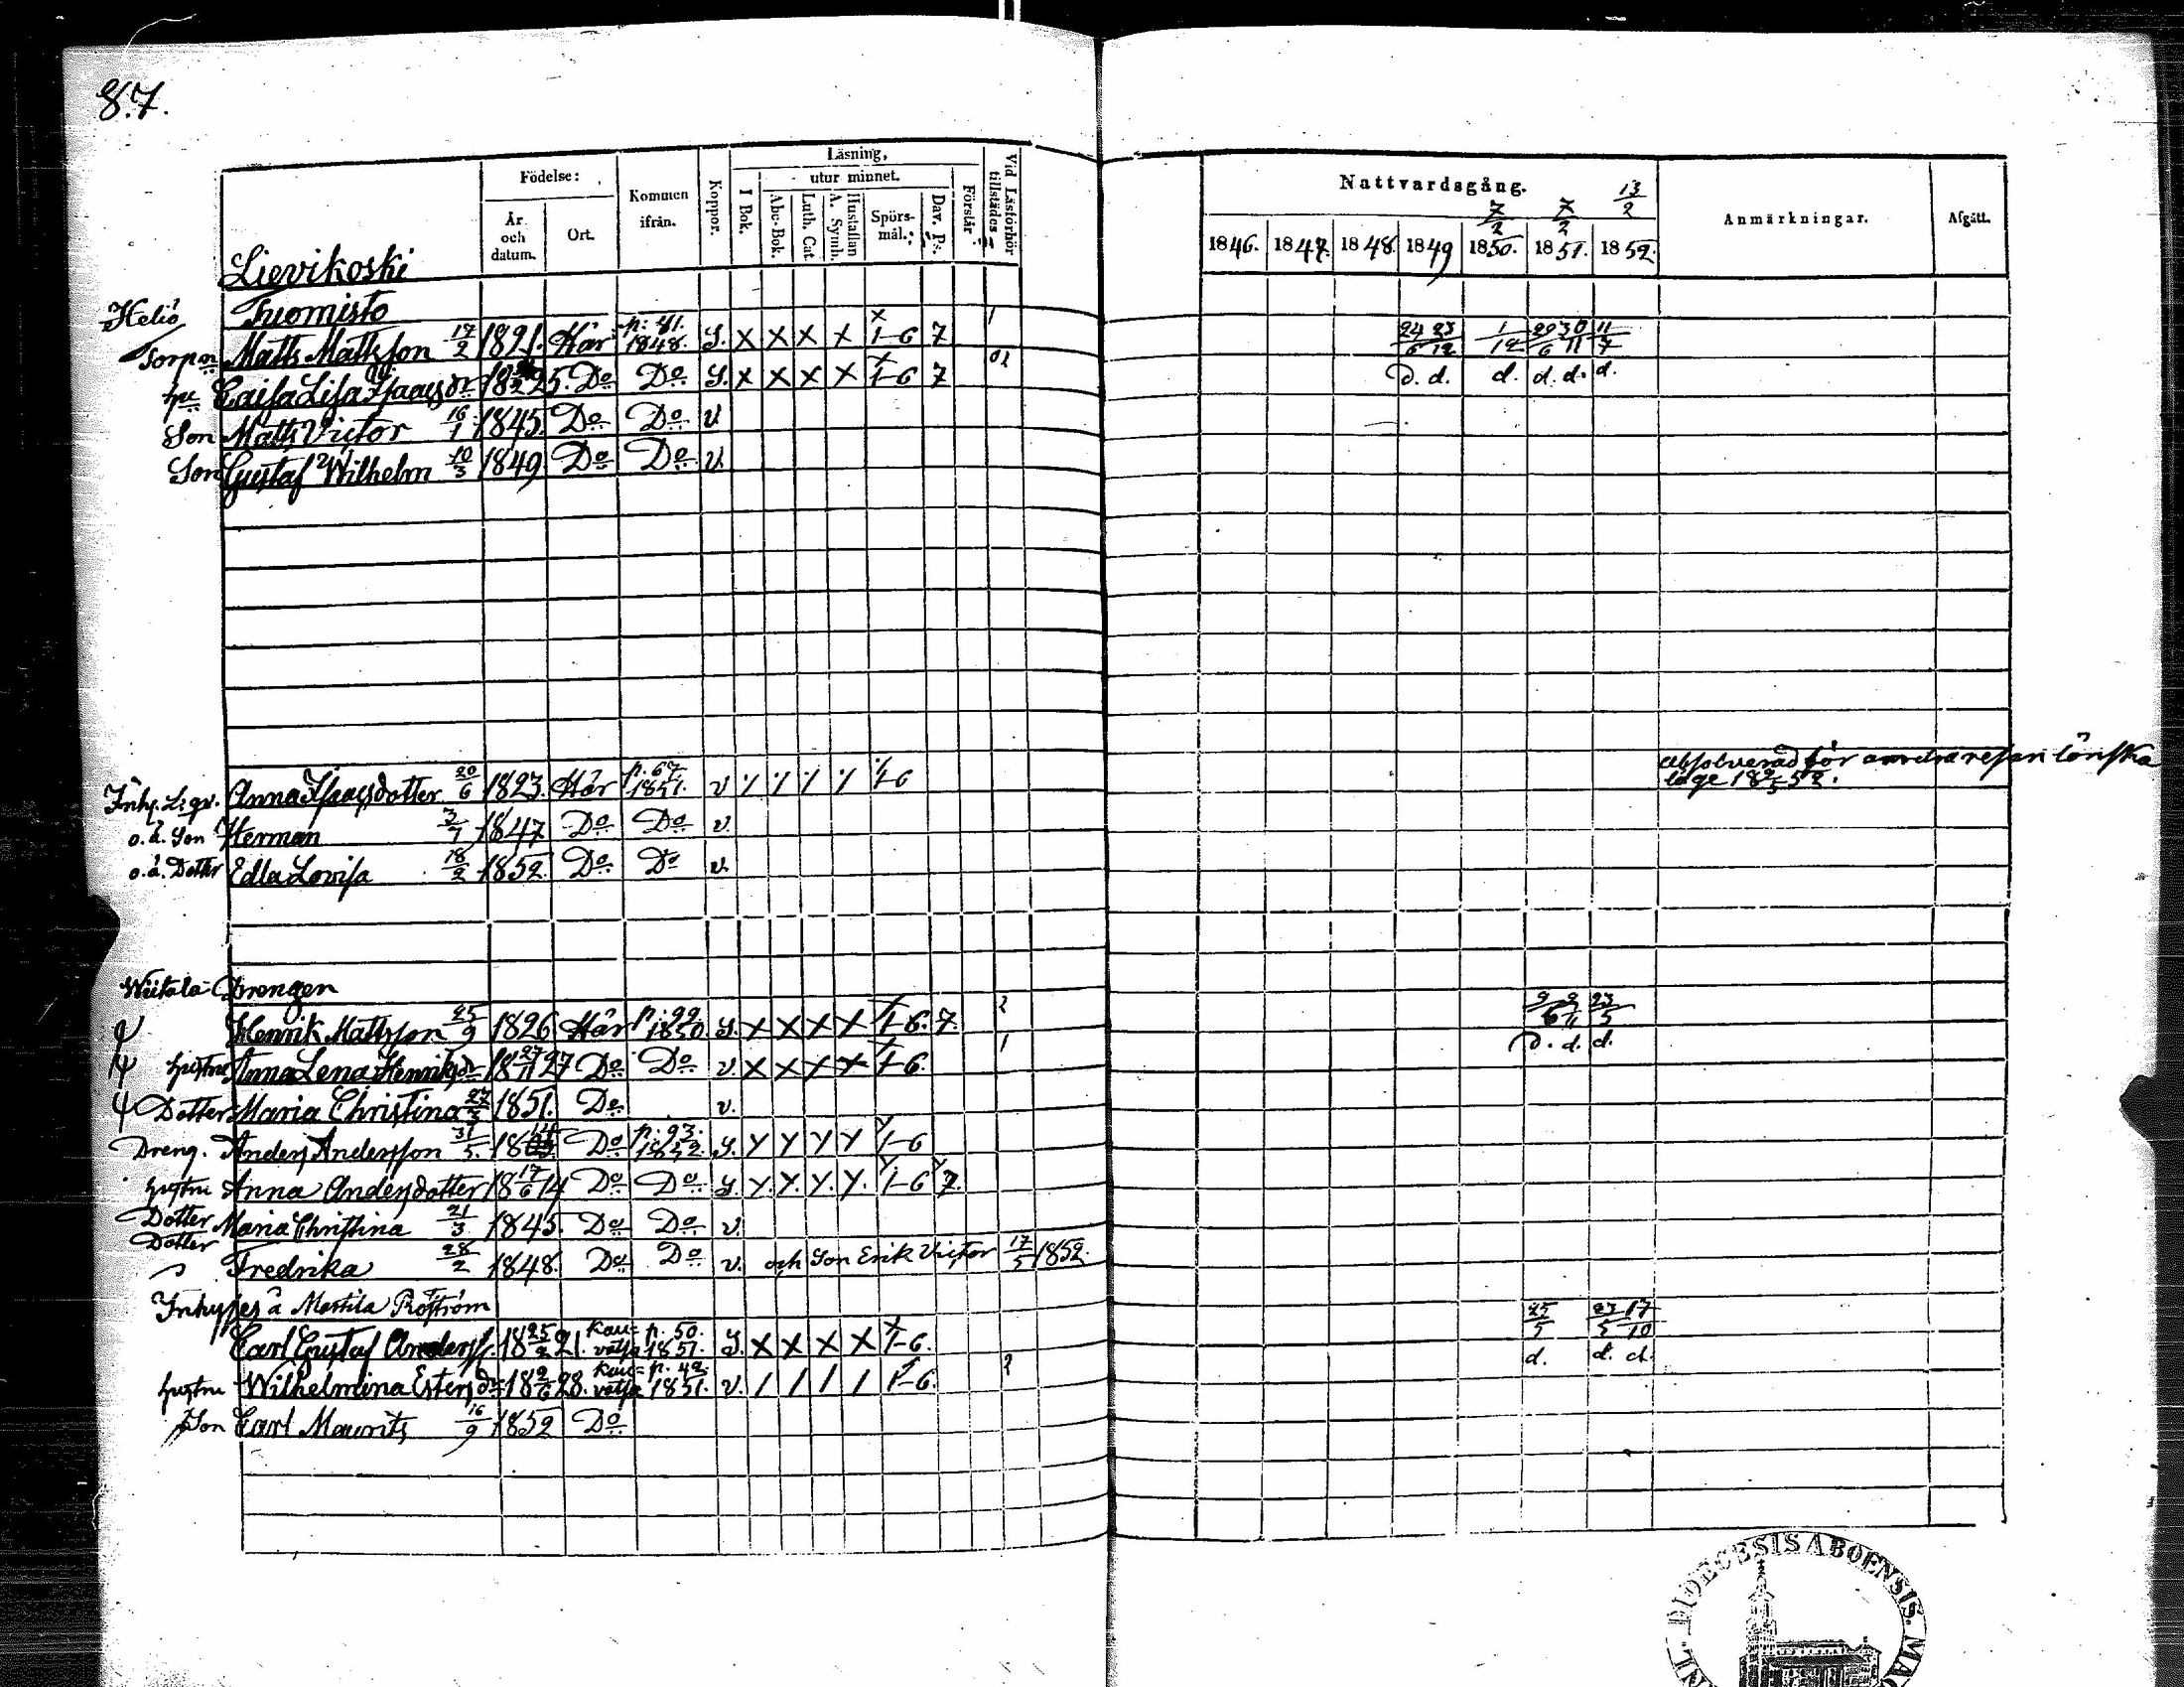 87.
Födelse: Kommen ifrån. Koppor. Läsning, utur minnet. Vid Läsförhör tillstädes
År och datum. Ort. I Bok. Abc-Bok. Luth. Cat. A. Symb. Hustaflan Spörs-mål. Dav. Ps. Förstår
Nattvardsgång. 7/2 7/2 13/2 Anmärkningar. Afgått.
1846. 1847. 1848. 1849 1850. 1851. 1852.
Lievikoski
Tuomisto
Matts Mattsson 17/2 1821. Här p: 81. 1848. y. X X X X X 1-6 7 1 24/6 23/12 1/12 29/6 30/11 11/7
Cajsa Lisa Isaacs dr 1825. Do Do y. X X X X X 1-6 7 d. d. d. d. d. d.
Son Matts Victor 16/1 1845. Do Do v
Son Gustaf Wilhelm 10/3 1849 Do Do v
Anna Isaacsdotter 20/6 1823. Här p. 67. 1851. v 1-6 absolverad för andra resan lönska
läge 18 2/5 52.
o.ä. Son Herman 3/7 1847 Do Do v.
o.ä. Dotter Edla Lovisa 18/2 1852. Do Do v.
Wiitala Drengen
Henrik Mattsson 25/9 1826 Här p: 99 1850. y. X X X X 1-6. 7. 2 9/6 9/11 23/5
hustru Anna Lena Henriksdr 18 27/11 27 Do Do v. X X X X 1-6. 1 d. d. d.
Dotter Maria Christina 27/3 1851. Do v.
Dreng. Anders Andersson 31/5 18 Do p: 93. 1852. y. Y Y Y Y 1-6
hustru Anna Andersdotter 18 17/6 14 Do Do y. Y. Y. Y. Y. 1-6 7
Dotter Maria Christina 21/3 1845. Do Do v.
Dotter Fredrika 28/2 1848. Do Do v. och Son Erik Victor 17/5 1852.
Inhyses å Marttila Roström
Carl Gustaf Anderss. 18 25/2 21. Kau=vatsa p. 50. 1851. y X X X X X 1-6. 25/5 23/5 17/10
hustru Wilhelmina Esters dr 18 2/6 28. Kau=vatsa p. 42. 1851. v. / / / / 1-6. 2 d. d. d.
Son Carl Maurits 16/9 1852 Do
DIOECESIS ABOENSIS. MA